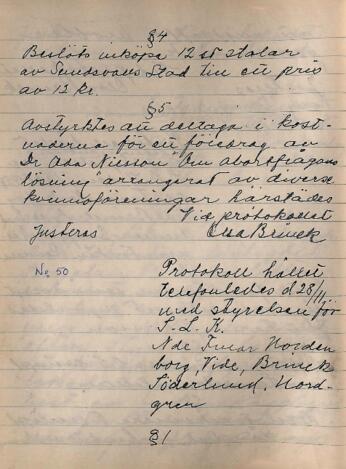 §4
Beslöts inköpa 12 st stolar
av Sundsvalls Stad till ett pris
av 12 kr.
§5
Avstyrktes att deltaga i kost-
naderna för ett föredrag av
Dr Ada Nilsson "Om abortfrågans
lösning" arrangerat av diverse
kvinnoföreningar härstädes
Vid protokollet
Justeras Elsa Brinck
No 50
Protokoll hållet
telefonledes d 28/11
med styrelsen för
S-L.K.
Nde Norden
borg, Vide, Brinck
Söderlund, Nord-
gren
§1